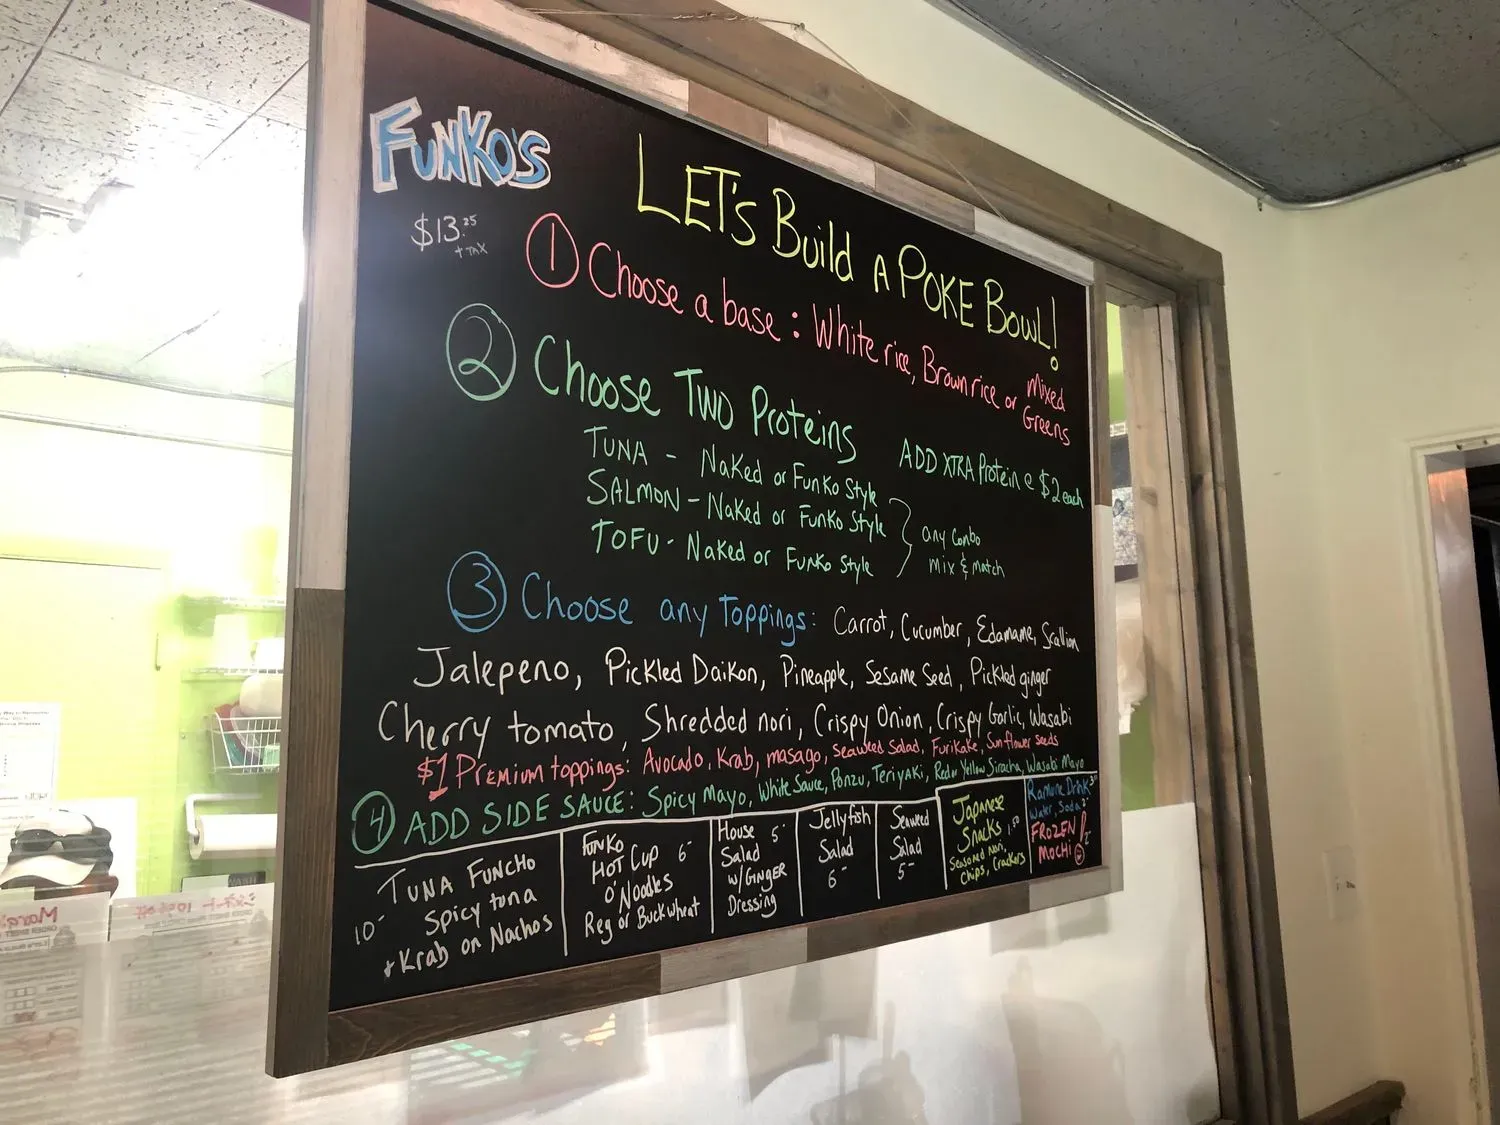 FUNKO'S
$13.25
+ TAX
LET'S Build A POKE BOWL!
1 Choose a base: White rice, Brown rice or Mixed Greens
2 Choose TWO Proteins
ADD XTRA Protein @ $2 each
TUNA - Naked or Funko Style
SALMON - Naked or Funko Style
TOFU - Naked or Funko Style
any Combo
mix & match
3 Choose any Toppings: Carrot, Cucumber, Edamame, Scallion
Jalepeno, Pickled Daikon, Pineapple, Sesame Seed, Pickled ginger
Cherry tomato, Shredded nori, Crispy Onion, Crispy Garlic, Wasabi
$1 Premium toppings: Avocado, Krab, masago, seaweed salad, Furikake, Sunflower seeds
4 ADD SIDE SAUCE: Spicy Mayo, White Sauce, Ponzu, Teriyaki, Red or Yellow Siracha, Wasabi Mayo
TUNA FUNCHO
Spicy tuna
+ Krab on Nachos
10-
Funko
HOT Cup 6-
O' Noodles
Reg or Buckwheat
House 5-
Salad
w/GINGER
Dressing
Jellyfish
Salad
6-
Seaweed
Salad
5-
Japanese
Snacks 1.50
Seasoned Nori,
Chips, Crackers
Ramune Drink 3
Water, Soda 2
FROZEN
Mochi